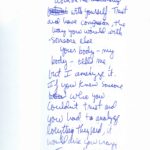 with yourself. Trust
and have compassion, the
way you would with
someone else
Your body - my
body - calls me
but I analyze it.
If you knew someone
who you
couldn't trust and
you had to analyze
everything they said, it
would drive you crazy